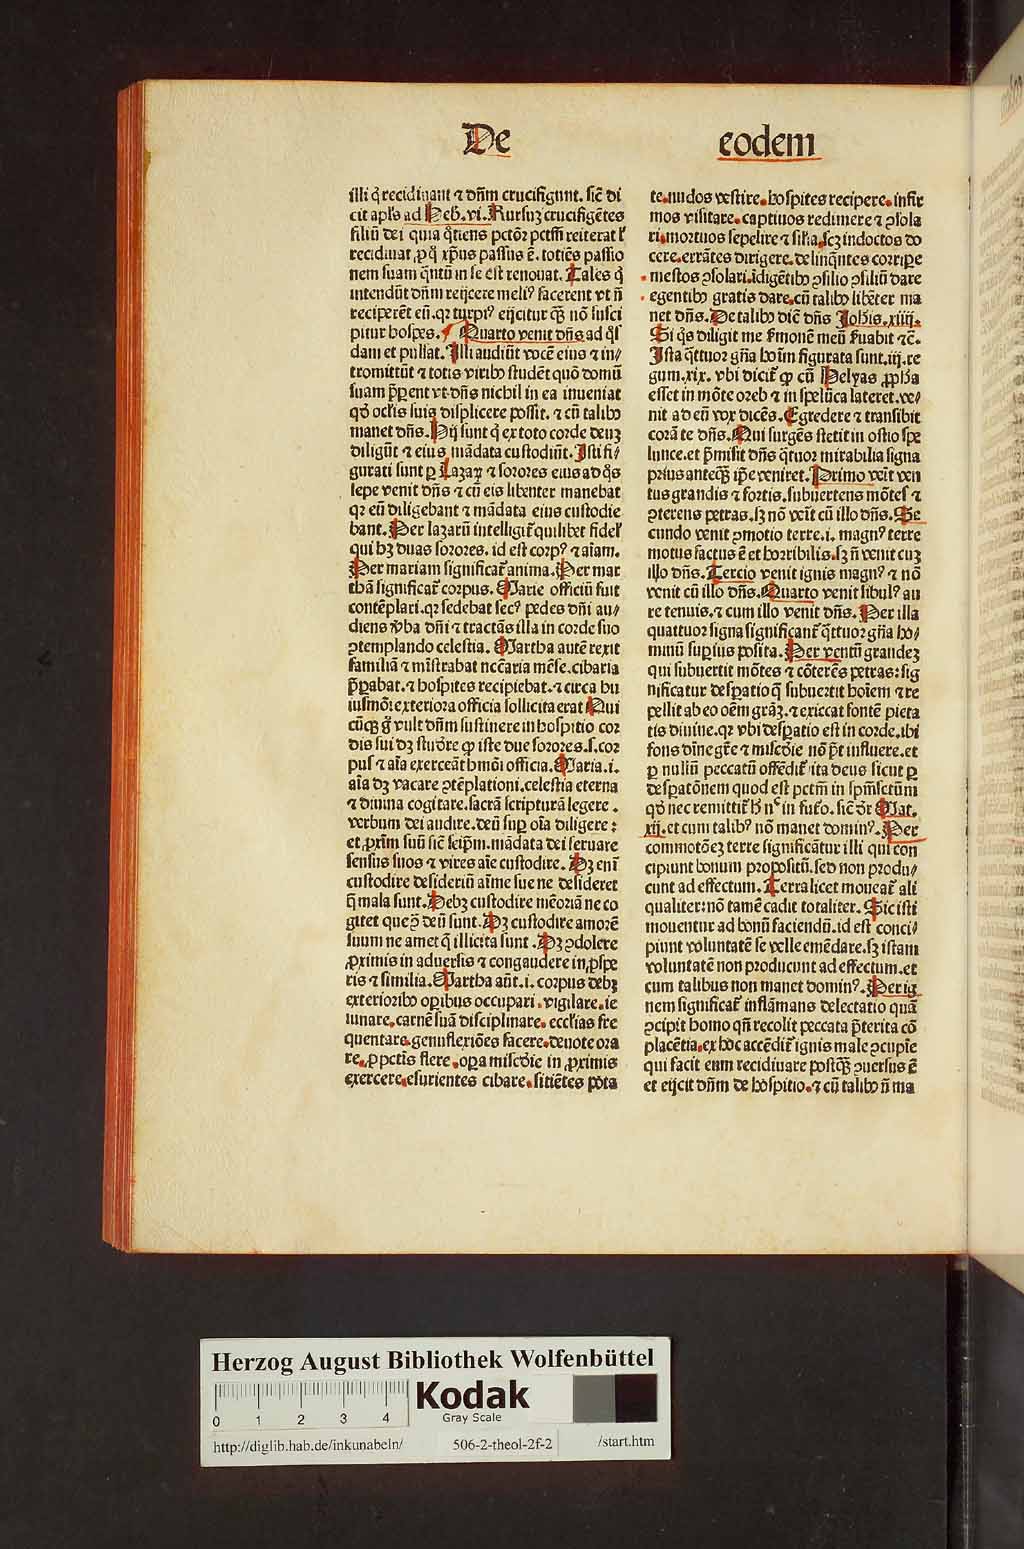 De eodem
illi q̇ recidiuant ⁊ dn̄m crucifigunt. sic̄ di
cit apl̓s ad Heb̓. vi. Rursuꝫ crucifigētes
filiū dei quia q̄tiens pctōr pctm̄ reiterat l̓
recidiuat, ꝓ q̊ xp̄us passus ē. totiēs passio
nem suam q̄ntū in se est renouat. Tales q̇
intendūt dn̄m reijcere meli⁹ facerent vt n̄
reciperēt eū. qꝛ turpi⁹ eijcitur qꝫ nō susci
pitur hospes. Quarto venit dn̄s ad q̇s
dam et pulsat. Illi audiūt vocē eius ⁊ in/
tromittūt ⁊ totis viribꝰ studēt quō domū
suam p̄parent vt dn̄s nichil in ea inueniat
qḋ ocl̓is suis displicere possit. ⁊ cū talibꝰ
manet dn̄s. Hij sunt q̇ ex toto corde deuꝫ
diligūt ⁊ eius mādata custodiūt. Isti fi/
gurati sunt ꝑ Lazaꝝ ⁊ sorores eius ad q̇s
sepe venit dn̄s ⁊ cū eis libenter manebat
qꝛ eū diligebant ⁊ mādata eius custodie
bant. Per lazarū intelligit̄ quilibet fidel̓
qui hꝫ duas sorores. id est corp⁹ ⁊ aīam.
Per mariam significat̄ anima. Per mar
thā significat̄ corpus. Marie officiū fuit
contēplari. qꝛ sedebat sec⁹ pedes dn̄i au/
diens v̓ba dn̄i ⁊ tractās illa in corde suo
ꝯtemplando celestia. Martha autē rexit
familiā ⁊ mīstrabat nc̄caria mēse. cibaria
p̄parabat. ⁊ hospites recipiebat. ⁊ circa hu
iusmōi exteriora officia sollicita erat Qui
cūqꝫ g̊ vult dn̄m sustinere in hospitio cor
dis sui dꝫ studere ꝙ iste due sorores. s. cor
pus ⁊ aīa exerceāt hmōi officia. Maria. i.
aīa dꝫ vacare ꝯtēplationi. celestia eterna
⁊ diuina cogitare. sacrā scripturā legere.
verbum dei audire. deū suꝑ oīa diligere:
et ꝓximū suū sic̄ seipm̄. mādata dei seruare
sensus suos ⁊ vires aīe custodire. Dꝫ enī
custodire desideriū aīme sue ne desideret
q̄ mala sunt. Debꝫ custodire mēoriā ne co
gitet que ꝯ̄ deū sunt. Dꝫ custodire amorē
suum ne amet q̄ illicita sunt. Dꝫ ꝯdolere
ꝓximis in aduersis ⁊ congaudere in ꝓspe
ris ⁊ similia. Martha aūt. i. corpus debꝫ
exterioribꝰ opibus occupari. vigilare. ie
iunare. carnē suā disciplinare. eccl̓ias fre
quentare. genuflexiōes facere. deuote ora
re. ꝓ pctīs flere. oꝑa mīsc̄die in ꝓximis
exercere. esurientes cibare. sitiētes pota
te. nudos vestire. hospites recipere. infir
mos visitare. captiuos redimere ⁊ ꝯsola
ri. mortuos sepelire ⁊ sil̓ia. scꝫ indoctos do
cere. errātes dirigere. delinq̄ntes corripe
mestos ꝯsolari. īdigētibꝰ ꝯsilio ꝯsiliū dare
egentibꝰ gratis dare. cū talibꝰ libēter ma
net dn̄s. De talibꝰ dic̄ dn̄s Joh̓is. xiiij.
Si q̇s diligit me s̓monē meū s̓uabit ⁊c̄.
Ista q̄ttuor gn̄a hoīm figurata sunt. iij. re
gum. xix. vbi dicit̄ ꝙ cū Helyas ꝓph̓a
esset in mōte oreb ⁊ in spelūca lateret. ve/
nit ad eū vox dicēs. Egredere ⁊ transibit
corā te dn̄s. Qui surgēs stetit in ostio spe
lunce. et p̄misit dn̄s q̄tuor mirabilia signa
prius anteqꝫ ip̄e veniret. Primo veīt ven
tus grandis ⁊ fortis. subuertens mōtes ⁊
ꝯterens petras. sꝫ nō veīt cū illo dn̄s. Se
cundo venit ꝯmotio terre. i. magn⁹ terre
motus factus ē et horribilis. sꝫ n̄ venit cuꝫ
illo dn̄s. Tercio venit ignis magn⁹ ⁊ nō
venit cū illo dn̄s. Quarto venit sibul⁹ au
re tenuis. ⁊ cum illo venit dn̄s. Per illa
quattuor signa significant̄ q̄ttuor gn̄a ho/
minū suꝑius posita. Per ventū grandeꝫ
qui subuertit mōtes ⁊ cōterēs petras: sig
nificatur desꝑatio q̄ subuertit hoīem ⁊ re
pellit ab eo oēm grāꝫ. ⁊ exiccat fontē pieta
tis diuine. qꝛ vbi desꝑatio est in corde. ibi
fons diīne gr̄e ⁊ misc̄die nō p̄t influere. et
ꝑ nullū peccatū offēdit̄ ita deus sicut ꝑ
desꝑatōnem quod est pctm̄ in spm̄sctūm
qḋ nec remittit̄ h̓ n̄c in futo. sic̄ dr̄ Mat.
xij. et cum talib⁹ nō manet domin⁹. Per
commotōeꝫ terre significātur illi qui con
cipiunt bonum propositū. sed non produ/
cunt ad effectum. Terra licet moueat̄ ali
qualiter: nō tamē cadit totaliter. Sic isti
mouentur ad bonū faciendū. id est conci/
piunt voluntatē se velle emēdare. sꝫ istam
voluntatē non producunt ad effectum. et
cum talibus non manet domin⁹. Per ig
nem significat̄ inflāmans delectatio quā
ꝯcipit homo qn̄ recolit peccata p̄terita cō
placētia. ex hoc accēdit̄ ignis male ꝯcupīe
qui facit eum recidiuare postqꝫ ꝯuersus ē
et eijcit dn̄m de hospitio. ⁊ cū talibꝰ n̄ ma
Herzog August Bibliothek Wolfenbüttel
0 1 2 3 4
Kodak
Gray Scale
http://diglib.hab.de/inkunabeln/ 506-2-theol-2f-2 /start.htm